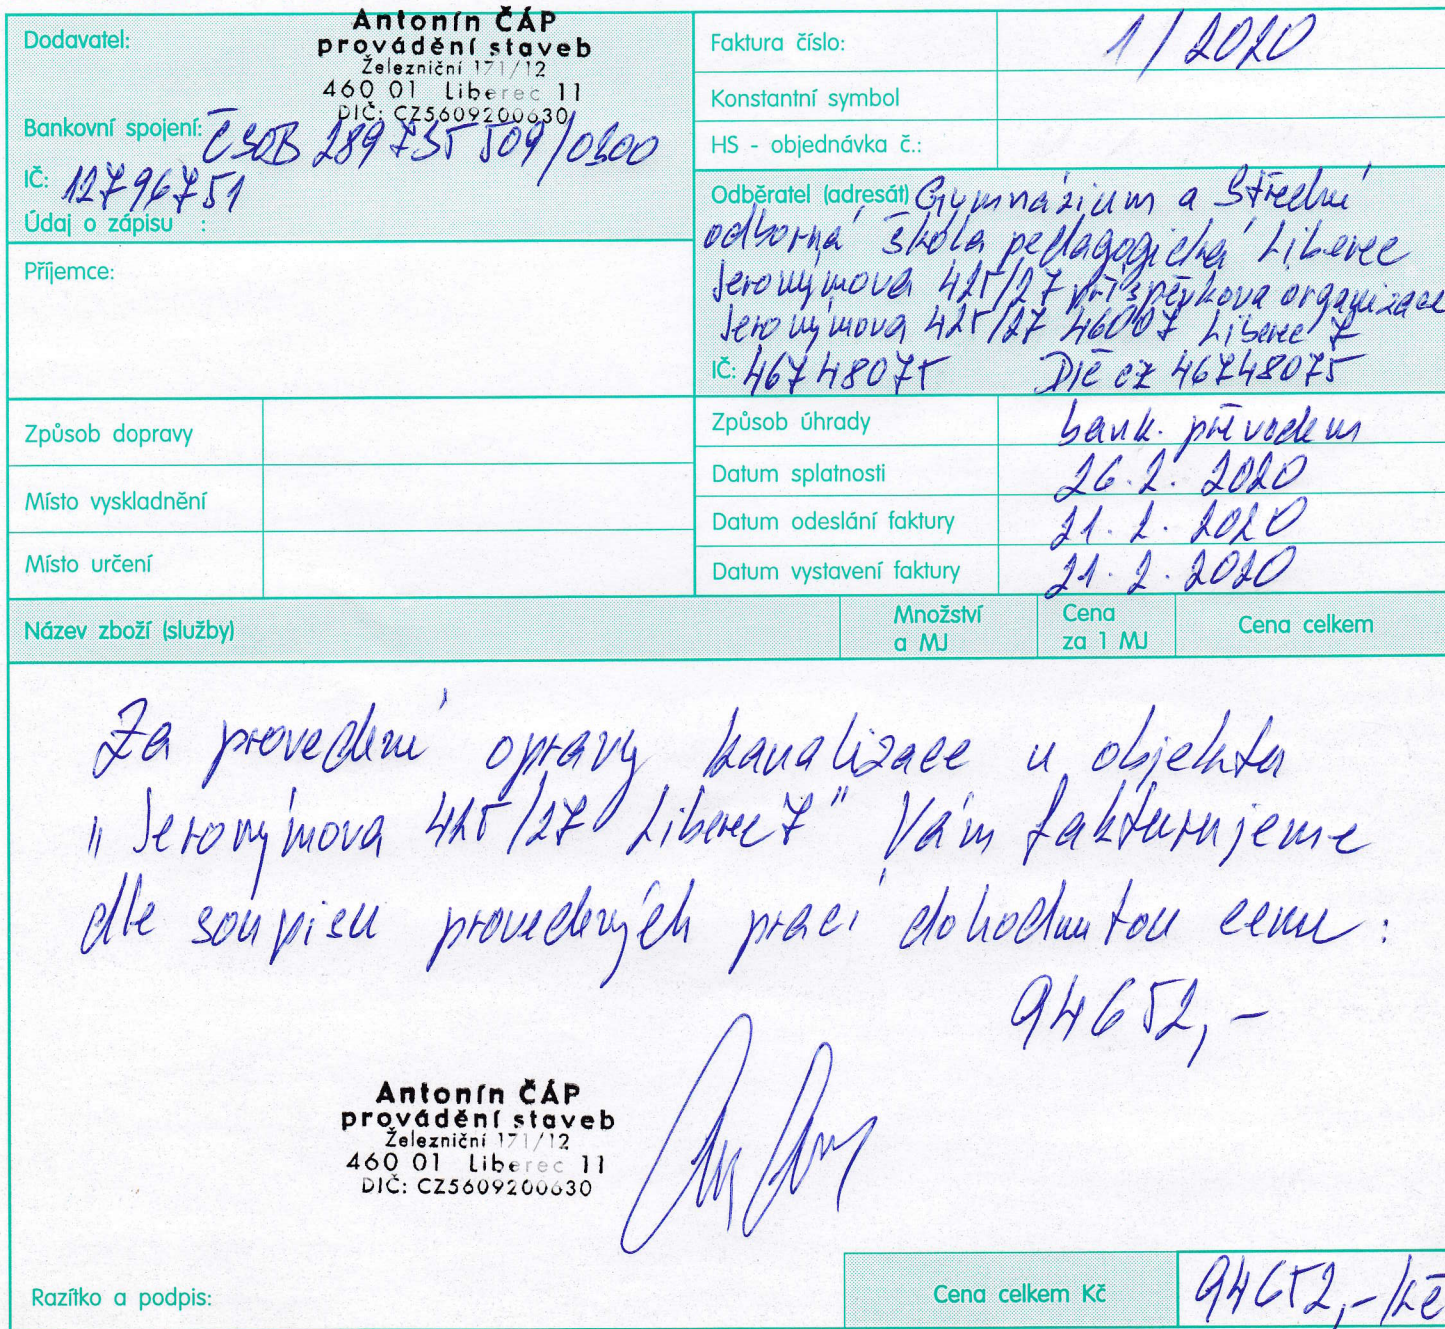 Dodavatel:
Antonín ČÁP
provádění staveb
Železniční 171/12
460 01 Liberec 11
DIČ: CZ5609200630
Bankovní spojení: ČSOB 289735509/0300
IČ: 12796751
Údaj o zápisu :
Příjemce:
Faktura číslo: 1/2020
Konstantní symbol
HS - objednávka č.:
Odběratel (adresát) Gymnázium a Střední
odborná škola pedagogická Liberec
Jeronýmova 425/27 příspěvková organizace
Jeronýmova 425/27 46007 Liberec 7
IČ: 46748075 DIČ CZ 46748075
Způsob dopravy
Místo vyskladnění
Místo určení
Způsob úhrady bank. převodem
Datum splatnosti 26.2. 2020
Datum odeslání faktury 21. 2. 2020
Datum vystavení faktury 21. 2. 2020
Název zboží (služby) Množství a MJ Cena za 1 MJ Cena celkem
Za provedení opravy kanalizace u objektu
"Jeronýmova 425/27 Liberec 7" Vám fakturujeme
dle soupisu provedených prací dohodnutou cenu:
94652,-
Antonín ČÁP
provádění staveb
Železniční 171/12
460 01 Liberec 11
DIČ: CZ5609200630
Razítko a podpis:
Cena celkem Kč 94652,-/Kč